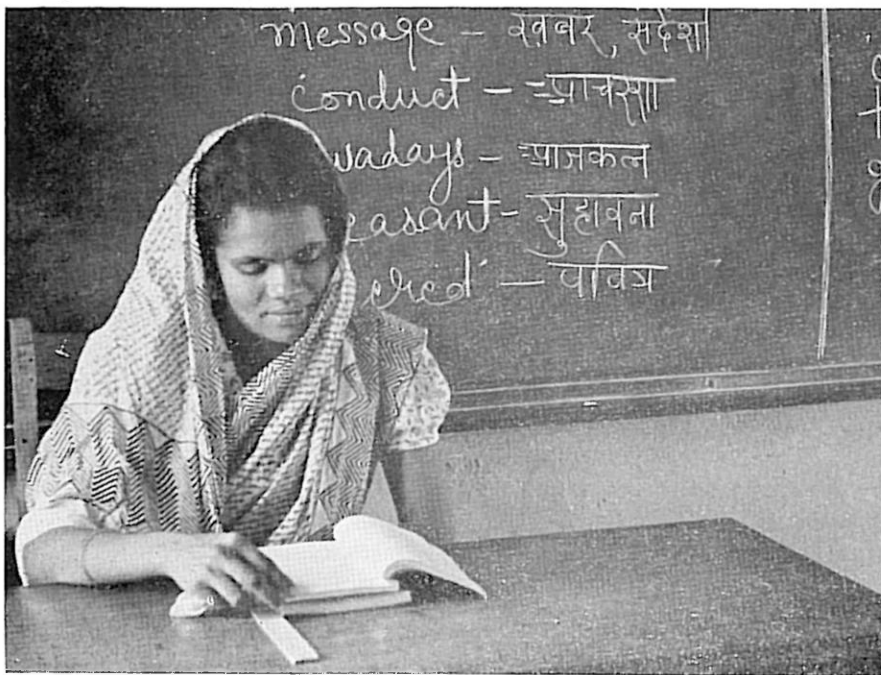 message - खबर, संदेशा
conduct - आचरण
wadays - आजकल
easant - सुहावना
cred - पवित्र